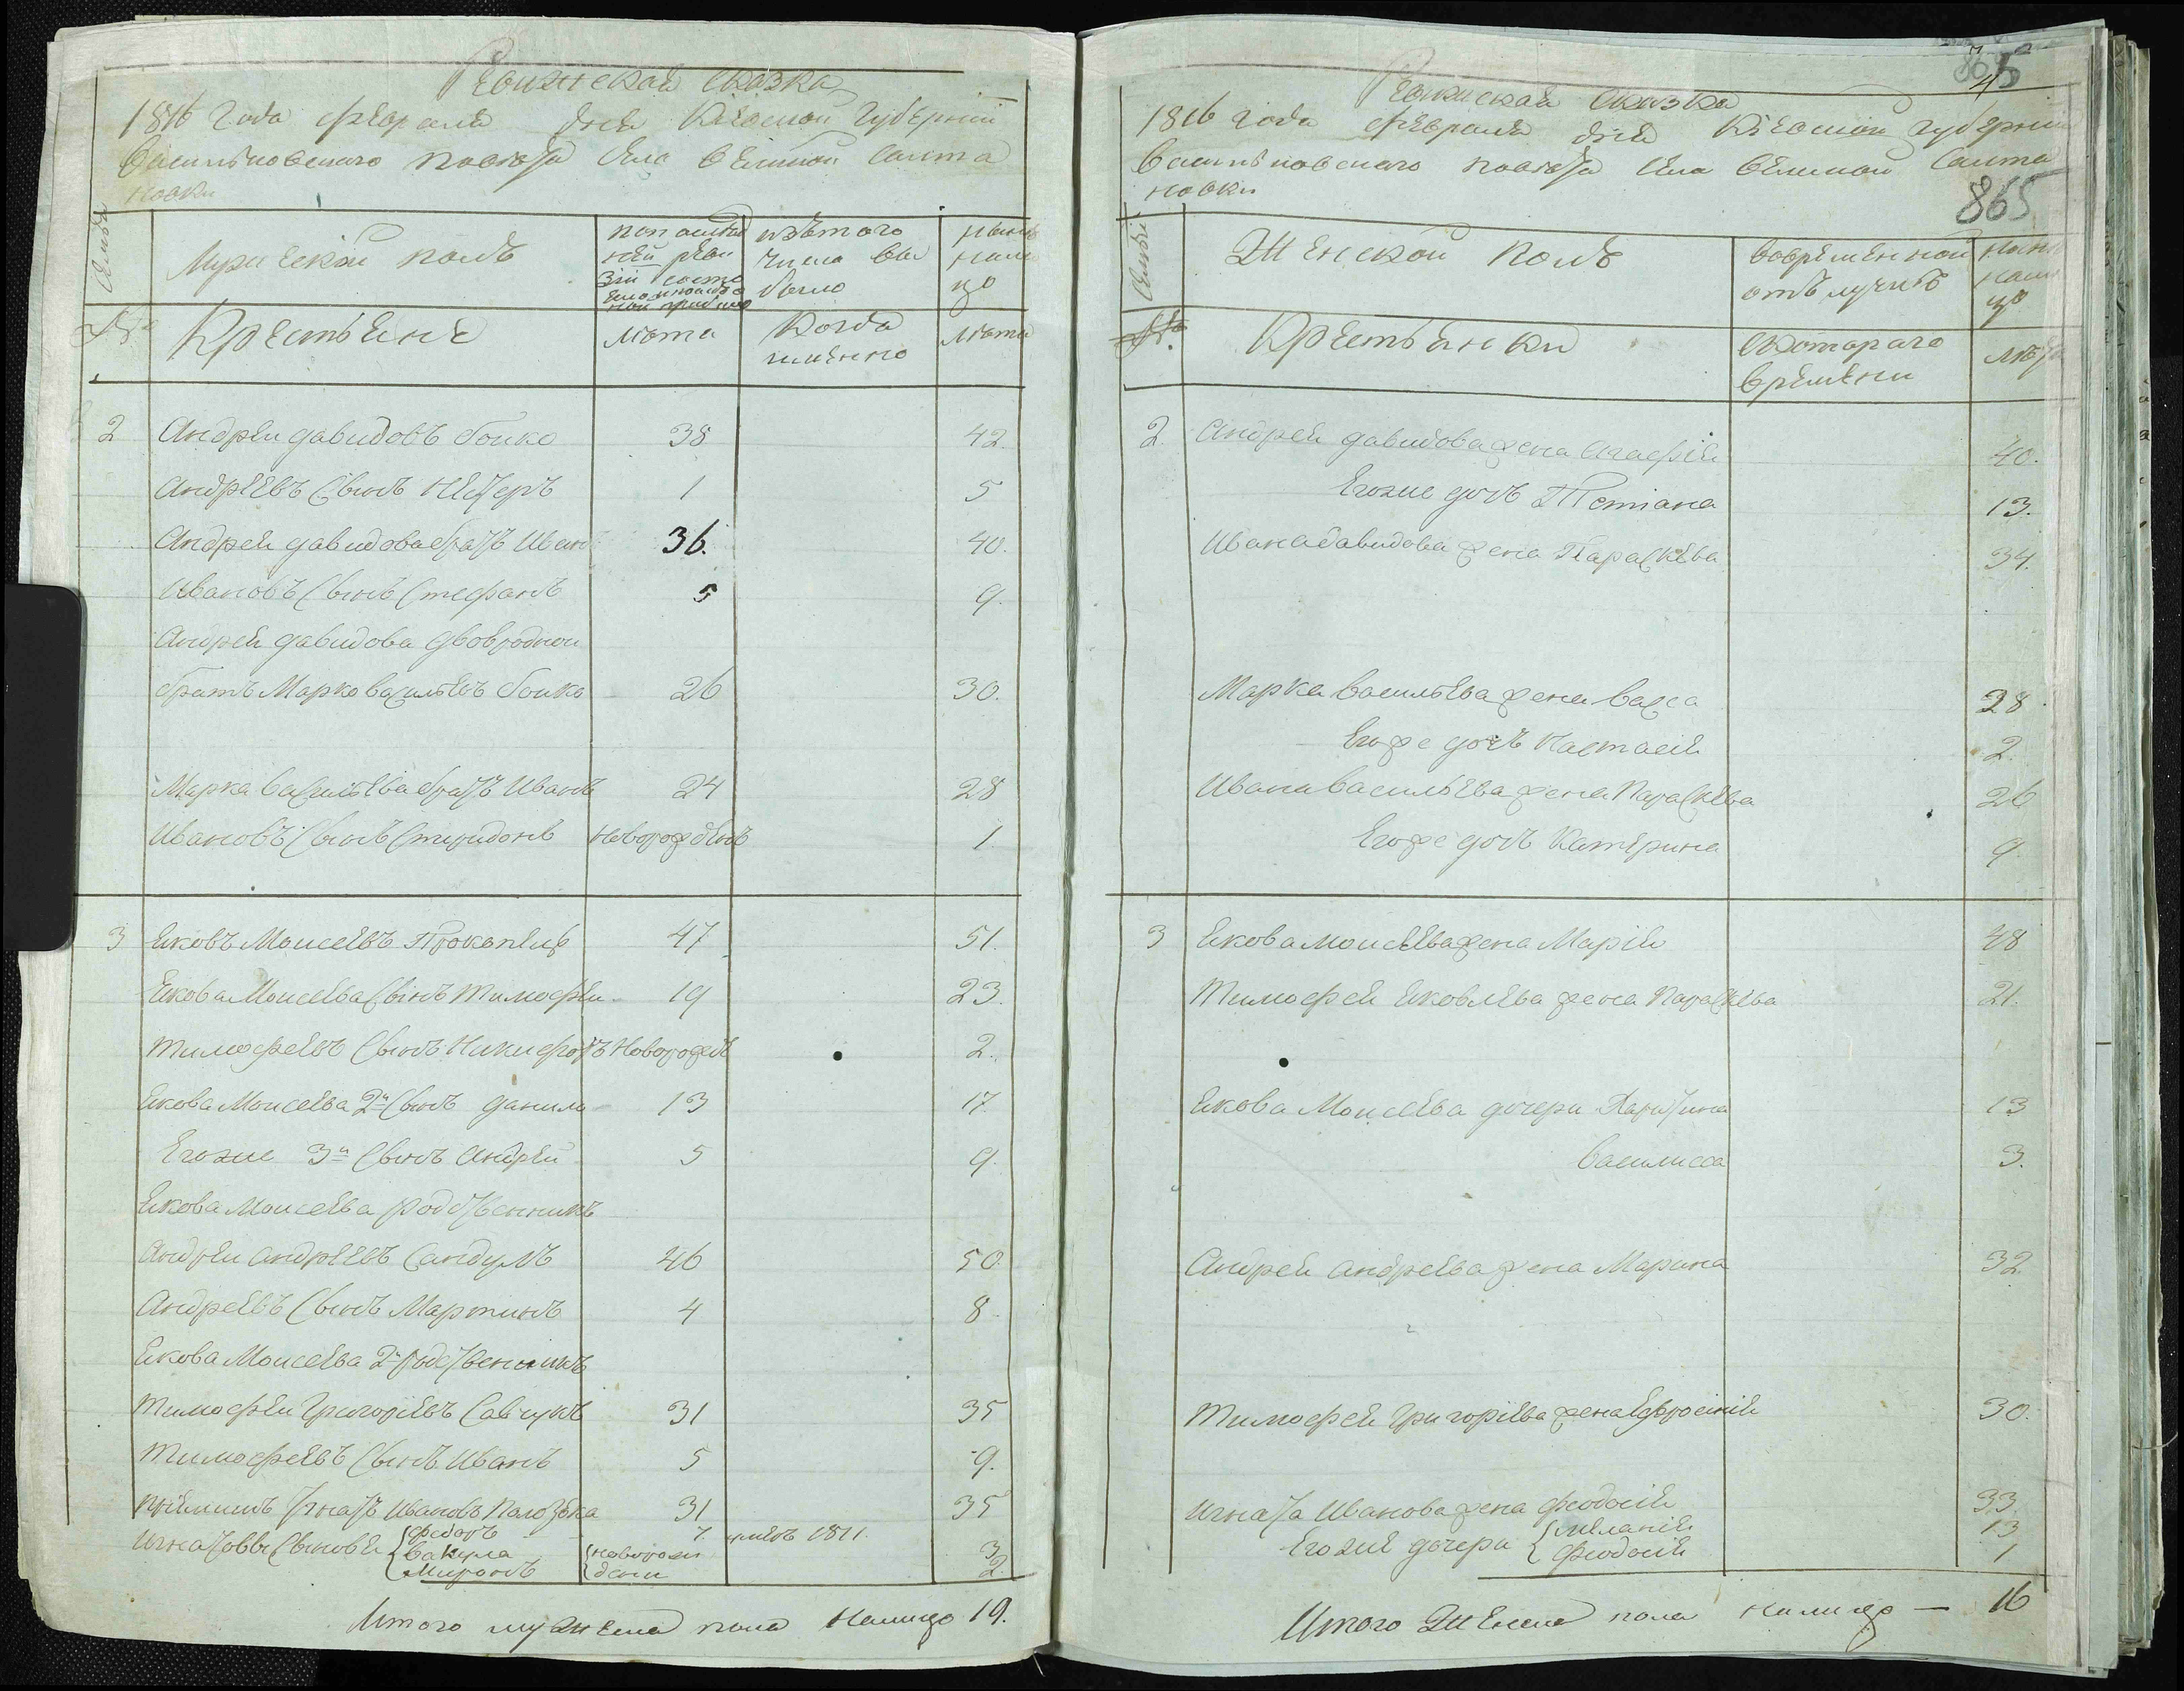 Ревижская сказка
1816 года февраля дня Киевской губернии
васильковского повета села великой Салта
новки
Семьи
Мужеской полъ
по последней ревизии состояло и после оной прибыло
изъ того числа выбыло
ныне налицо
№
Крестьяне
лета
Когда именно
лета
2 Андрей давидовъ бойко 38 42.
Андреевъ сынъ Нестеръ 1 5
Андрея давидова братъ Иванъ 36. 40.
Ивановъ сынъ Стефанъ 5 9.
Андрея давидова двоюродной
братъ Марко васильевъ бойко 26 30.
Марка васильева братъ Иванъ 24 28
Ивановъ сынъ Спиридонъ новорожденъ 1
3 Яковъ Моисеевъ Прокопецъ 47 51.
Якова Моисеева сынъ Тимофей 19 23.
Тимофеевъ сынъ Никифоръ новорожденъ 2.
Якова Моисеева 2й сынъ данило 13 17
Егоже 3й сынъ Андрей 5 9.
Якова Моисеева родственникъ
Андрей андреевъ Сандулъ 46 50
Андреевъ сынъ Мартинъ 4 8.
Якова Моисеева 2й родственникъ
Тимофей Григориевъ Савчукъ 31 35
Тимофеевъ сынъ Иванъ 5 9.
Игнатъ Ивановъ 31 35
Игнатовы сыновья федоръ 7. умеръ 1811.
вакула новорождени 3
Миронъ 2.
Итого мужеска пола налицо 19.
5
865
Ревижская сказка
1816 года февраля дня Киевской губернии
васильковского повета села великой Салта
новки
Семьи
Женской полъ
во временной отълучке
ныне налицо
№.
Крестьянки
скотораго времени
лета
2. Андрея давидова жена Агафия 40.
Егоже дочь Тетиана 13.
Ивана давидова жена Параскева 34.
Марка васильева жена васса 28
Егоже дочь Настасия 2.
Ивана васильева жена Параскева 26
Егоже дочь Катерина 9
3 Якова моисеева жена Мария 48
Тимофея Яковлева жена Параскева 21.
Якова Моисеева дочери Харитина 13
василисса 3.
Андрея андреева жена Марина 32
Тимофея Григориева жена Ефросиния 30.
Игната Иванова жена феодосия 33.
Егоже дочери мелания 13
феодосия 1
Итого Женска пола налицо — 16